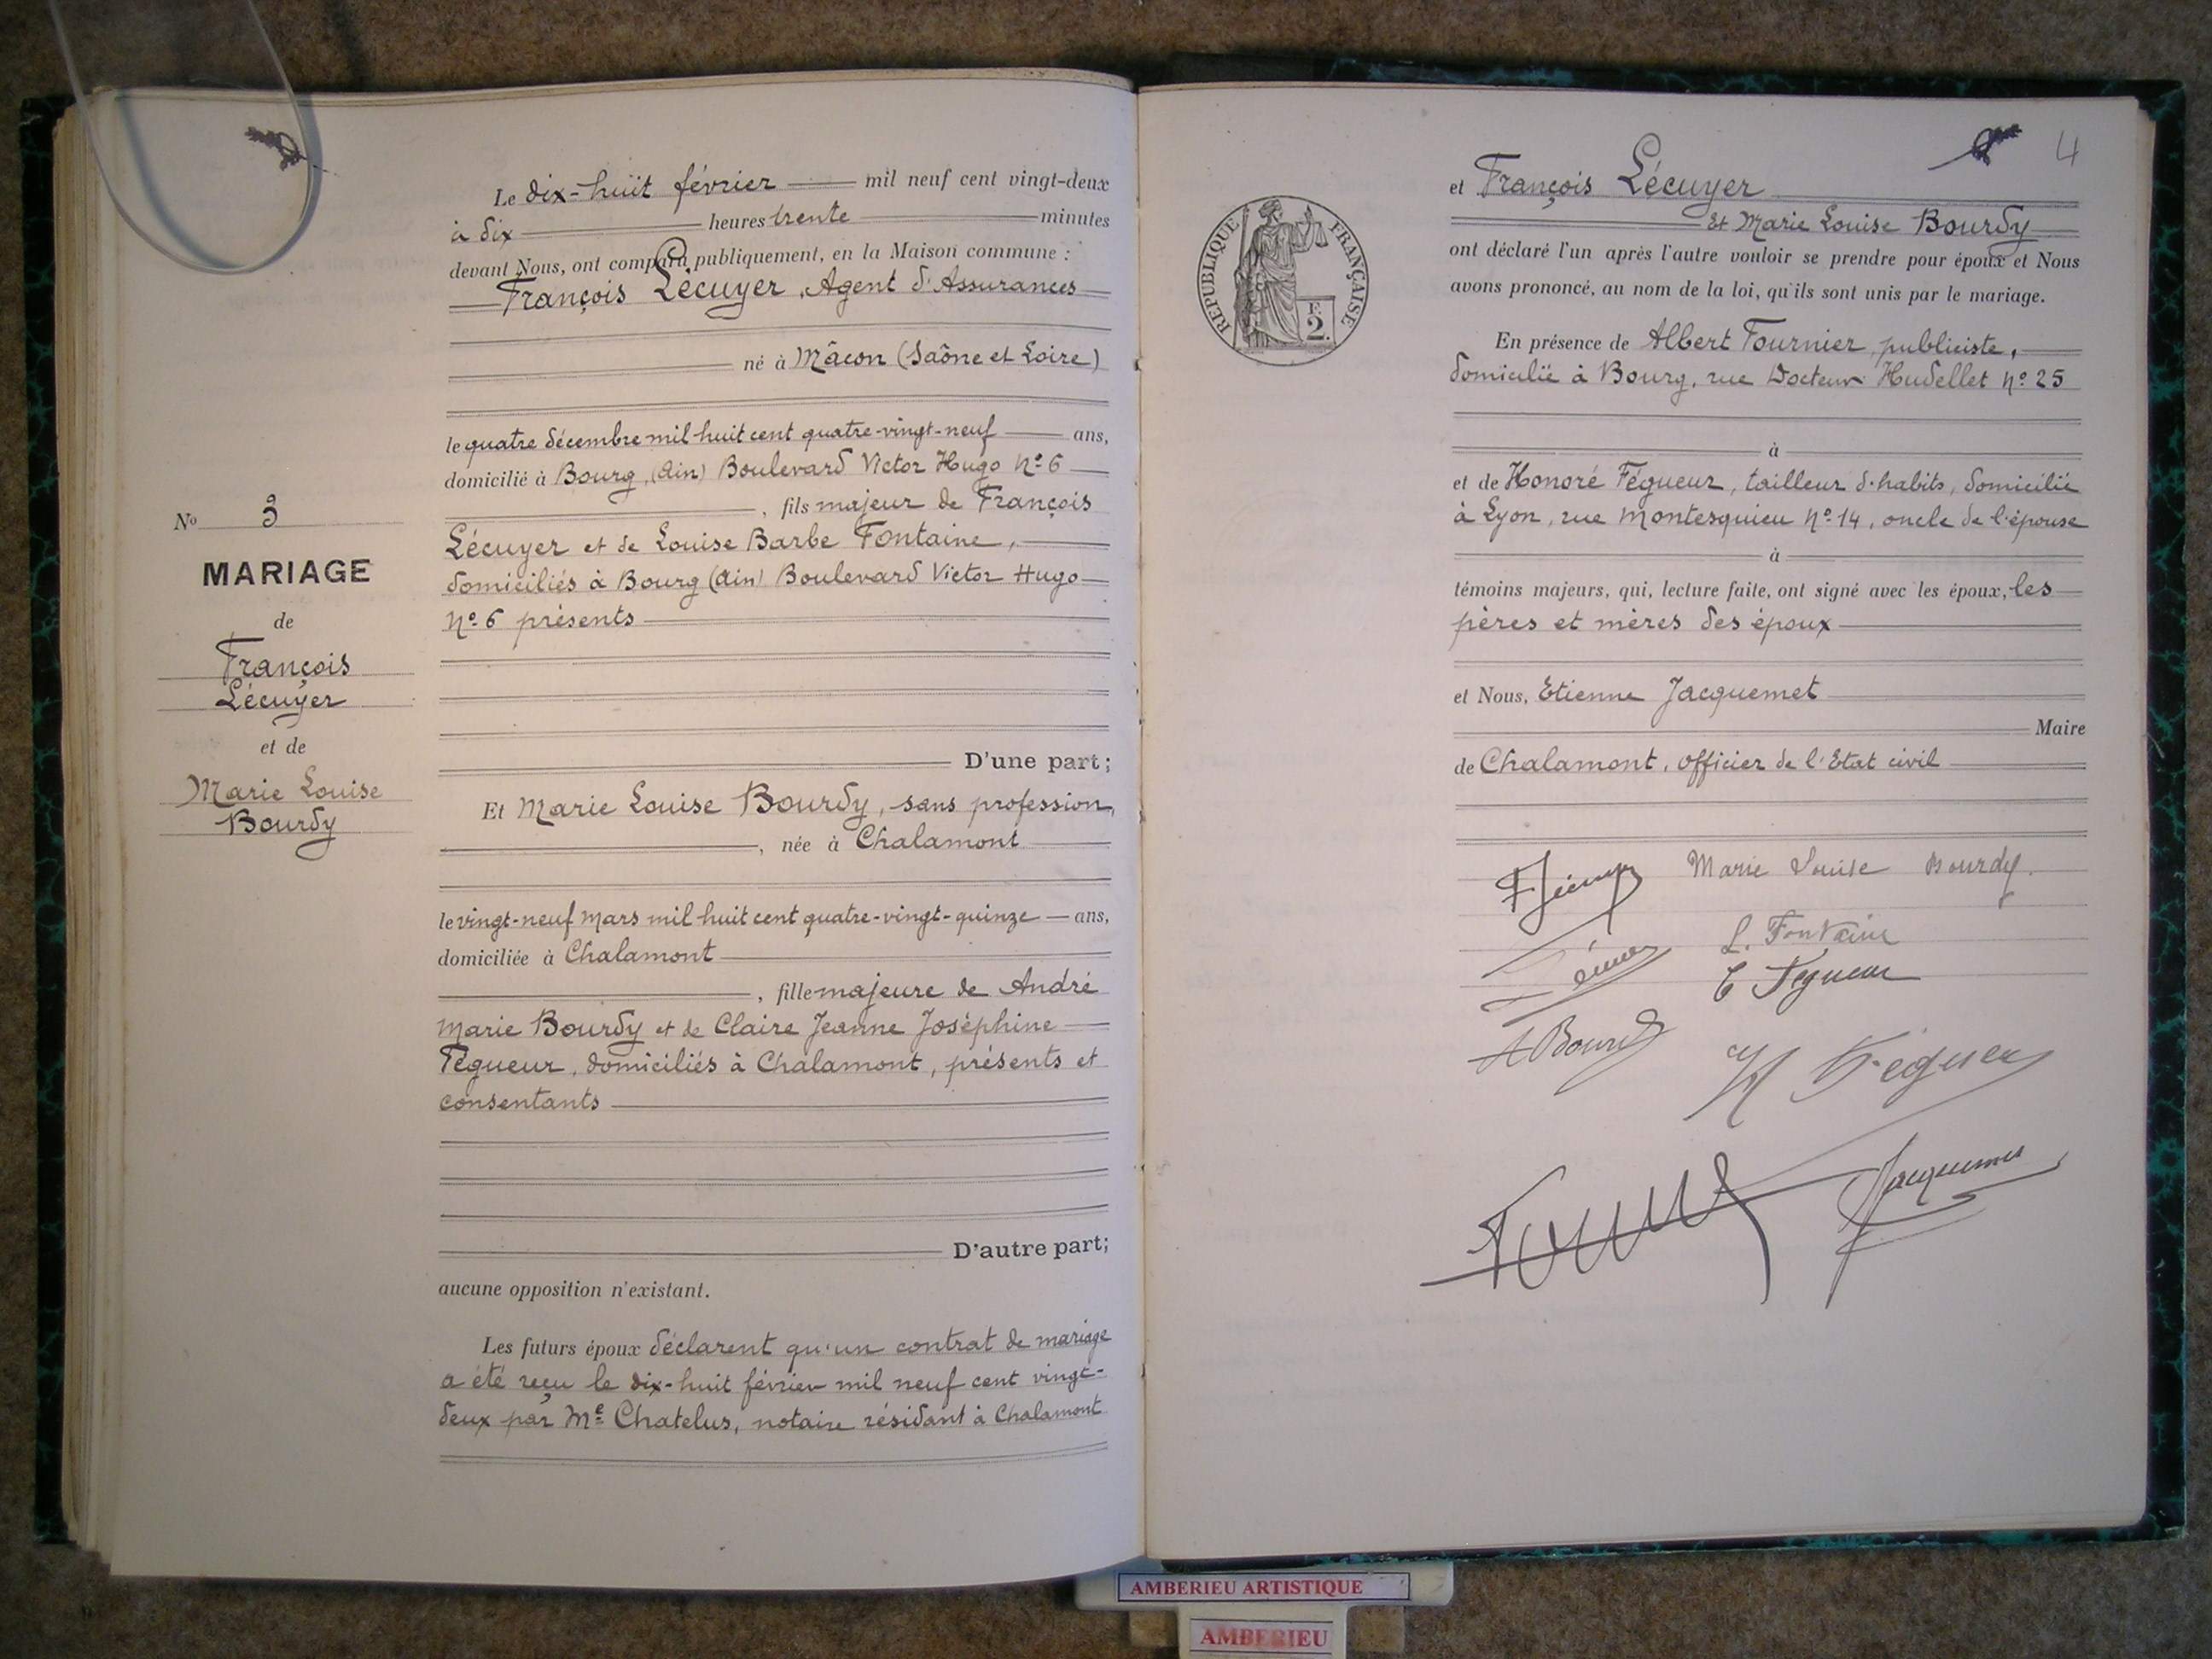 Le dix-huit février mil neuf cent vingt-deux
à dix heures trente minutes
devant Nous, ont comparu publiquement, en la Maison commune :
François Lécuyer, Agent d'Assurances
né à Mâcon (Saône et Loire)
le quatre décembre mil huit cent quatre-vingt-neuf ans,
domicilié à Bourg, (Ain) Boulevard Victor Hugo Nº 6
, fils majeur de François
Lécuyer et de Louise Barbe Fontaine,
domiciliés à Bourg (Ain) Boulevard Victor Hugo
Nº 6 présents
D'une part;
Et Marie Louise Bourdy, sans profession,
, née à Chalamont
le vingt-neuf mars mil huit cent quatre-vingt-quinze ans,
domiciliée à Chalamont
, fille majeure de André
Marie Bourdy et de Claire Jeanne Joséphine
Fégueur, domiciliés à Chalamont, présents et
consentants
D'autre part;
aucune opposition n'existant.
Les futurs époux déclarent qu'un contrat de mariage
a été reçu le dix-huit février mil neuf cent vingt-
deux par Me Chatelus, notaire résidant à Chalamont
Nº 3
MARIAGE
de
François
Lécuyer
et de
Marie Louise
Bourdy
4
RÉPUBLIQUE FRANÇAISE
F.
2.
et François Lécuyer
Et Marie Louise Bourdy
ont déclaré l'un après l'autre vouloir se prendre pour époux et Nous
avons prononcé, au nom de la loi, qu'ils sont unis par le mariage.
En présence de Albert Fournier, publiciste,
domicilié à Bourg, rue Docteur Hudellet Nº 25
à
et de Honoré Fégueur, tailleur d'habits, domicilié
à Lyon, rue Montesquieu Nº 14, oncle de l'épouse
à
témoins majeurs, qui, lecture faite, ont signé avec les époux, les
pères et mères des époux
et Nous, Etienne Jacquemet
Maire
de Chalamont, officier de l'Etat civil
Marie Louise Bourdy.
L. Fontaine
C Fégueur
A Bourdy
H Fégueur
Jacquemet
AMBERIEU ARTISTIQUE
AMBERIEU